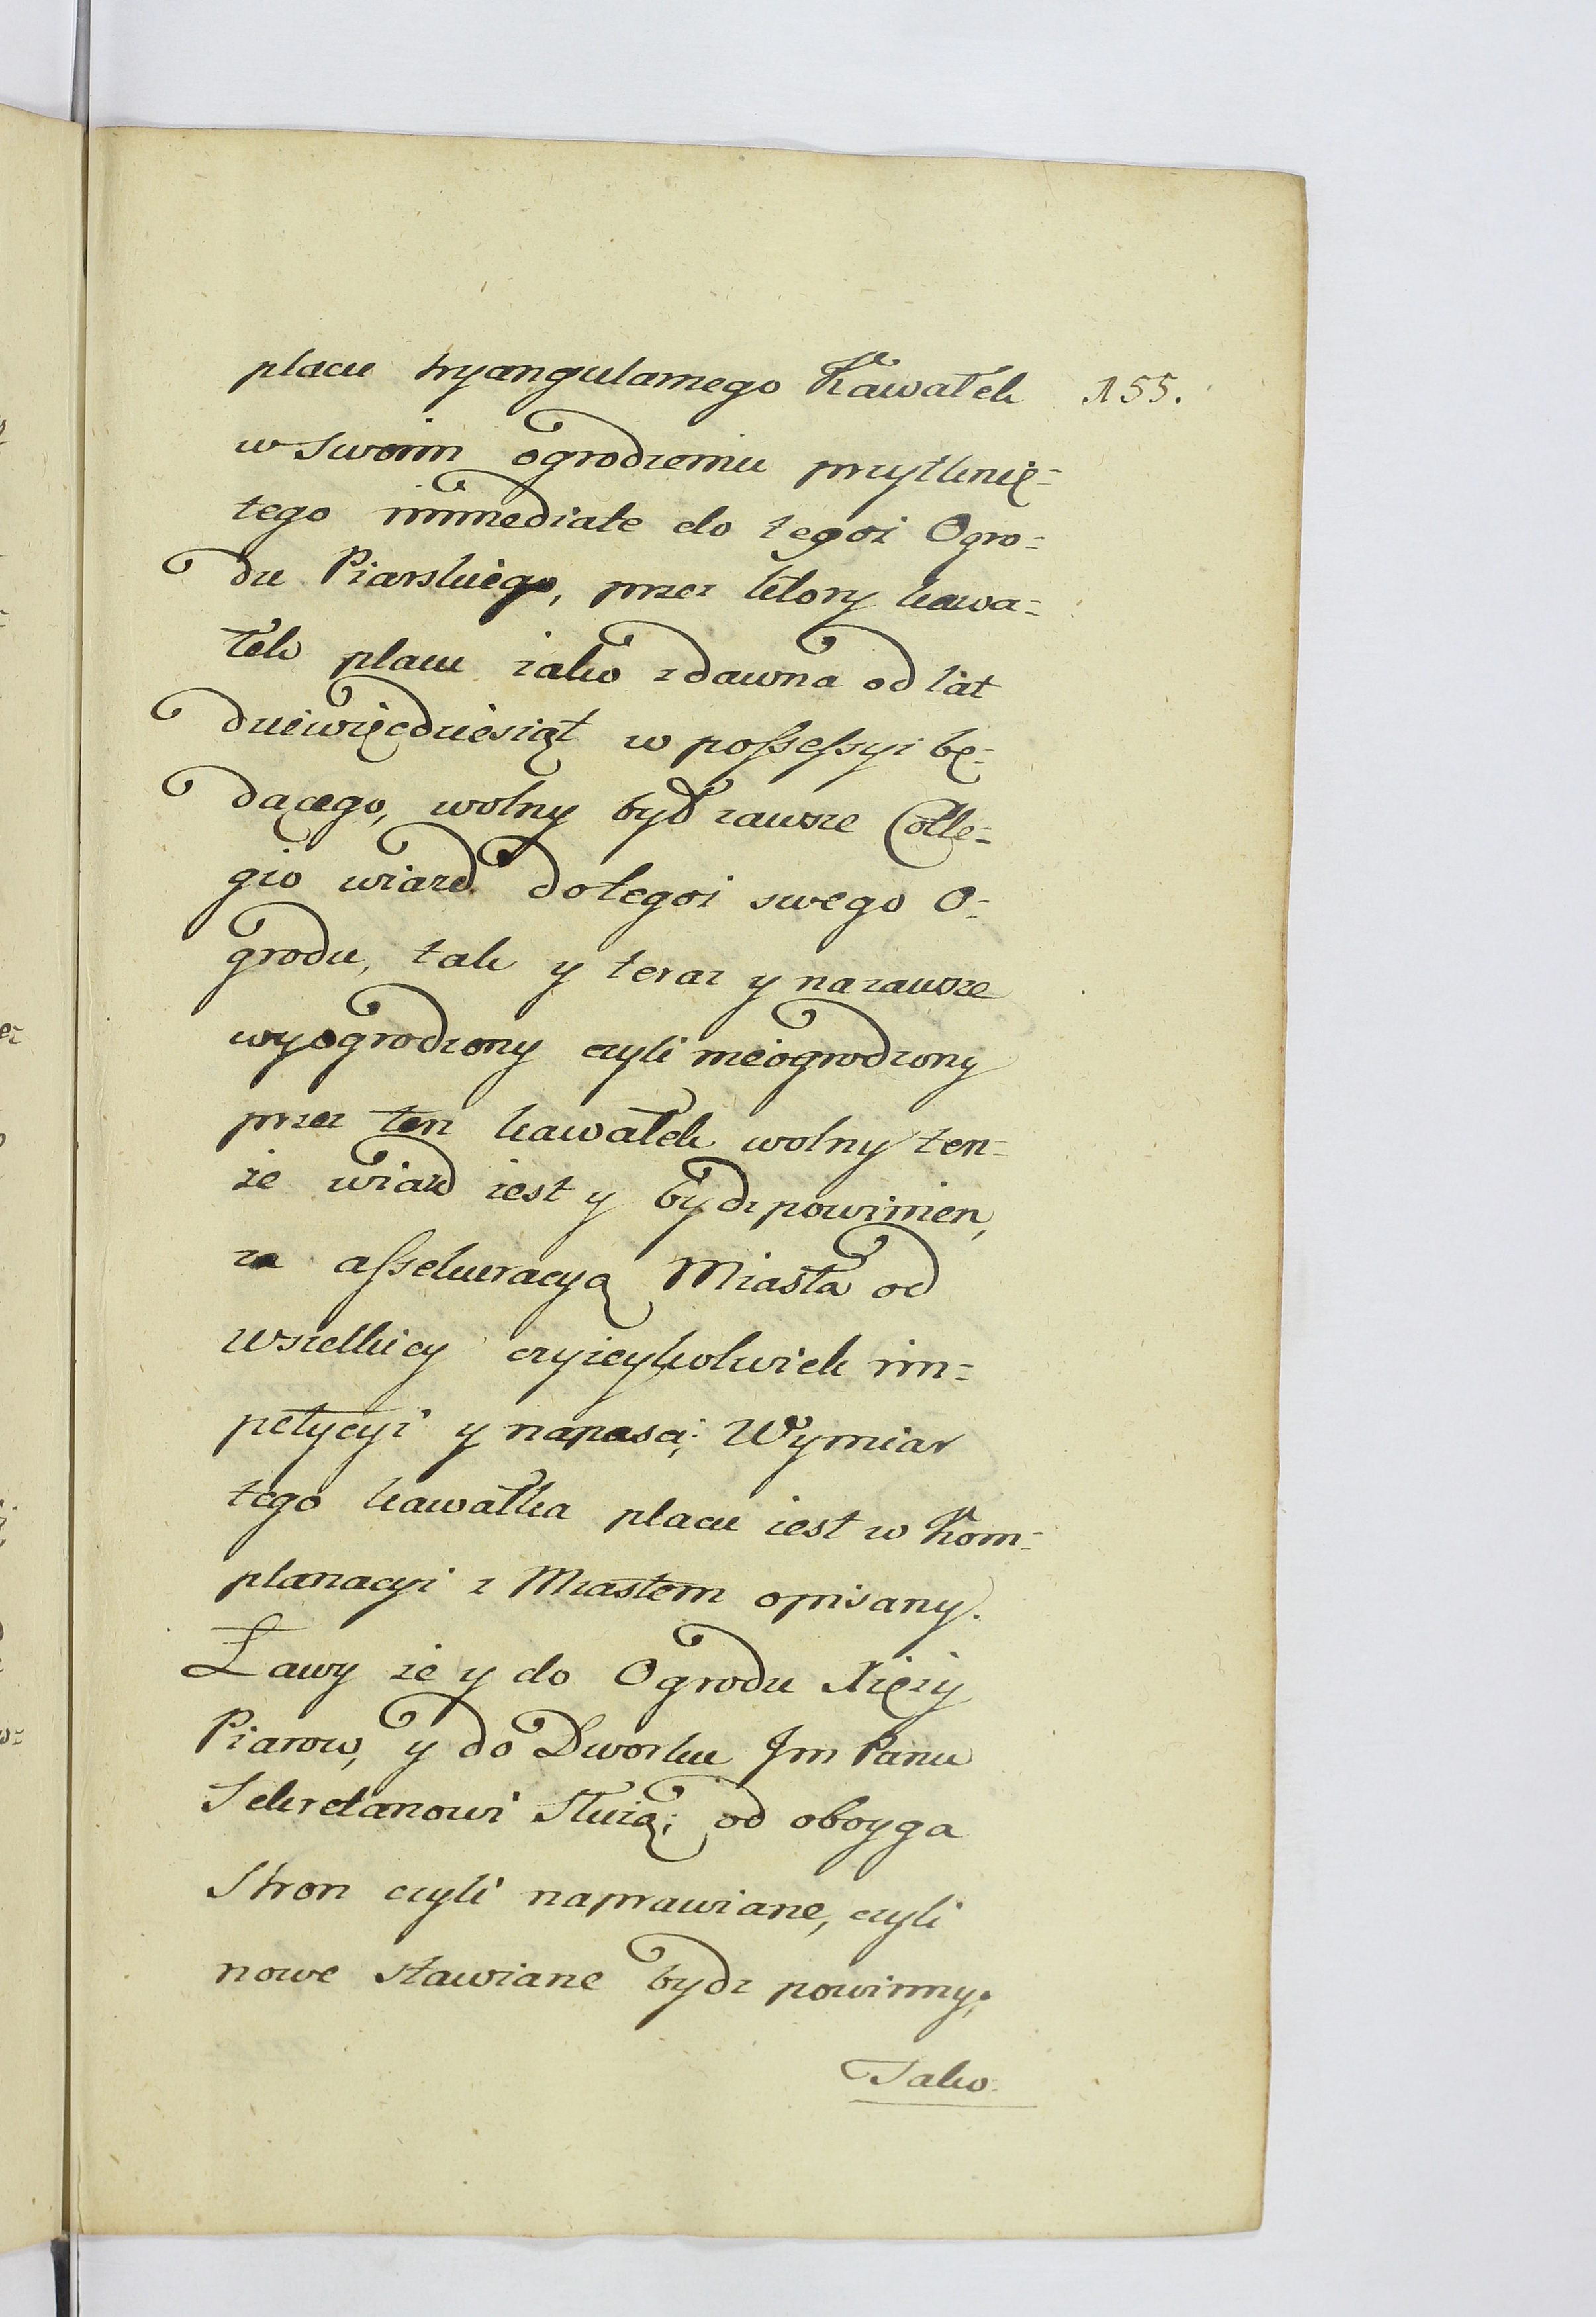 placu tryangularnego Kawałek 155.
w swoim ogrodzeniu przytknię-
tego immediate do tegoż Ogro-
du Piarskiego, przez ktory kawa-
łek placu iako zdawna od lat
dziewięcdziesiąt w possessyi bę-
dącego, wolny był zawsze Colle-
gio wiazd do tegoż swego O-
grodu, tak y teraz y na zawsze
wyogrodzony czyli nieogrodzony
przez ten kawałek wolny ten-
że wiazd iest y bydz powinien,
za assekuracyą Miasta od
wszelkiey czyieykolwiek im-
petycyi y napasci; Wymiar
tego kawałka placu iest w Kom-
planacyi z Miastem opisany.
Ławy że y do Ogrodu Xięży
Piarow, y do Dworku Jm Panu
Sekretarzowi Służą; od oboyga
Stron czyli naprawiane, czyli
nowe stawiane bydz powinny;
Jako